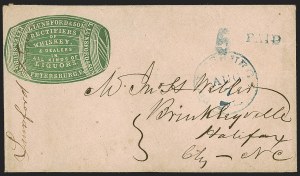 LUNSFORD & SON
RECTIFIERS
OF
WHISKEY,
& DEALERS
IN
ALL KINDS OF
LIQUORS
PETERSBURG,
5
PAID
AUG
7
Lunsford
Mr Jno S Willis
Brinkleyville
Halifax
Cty - N C